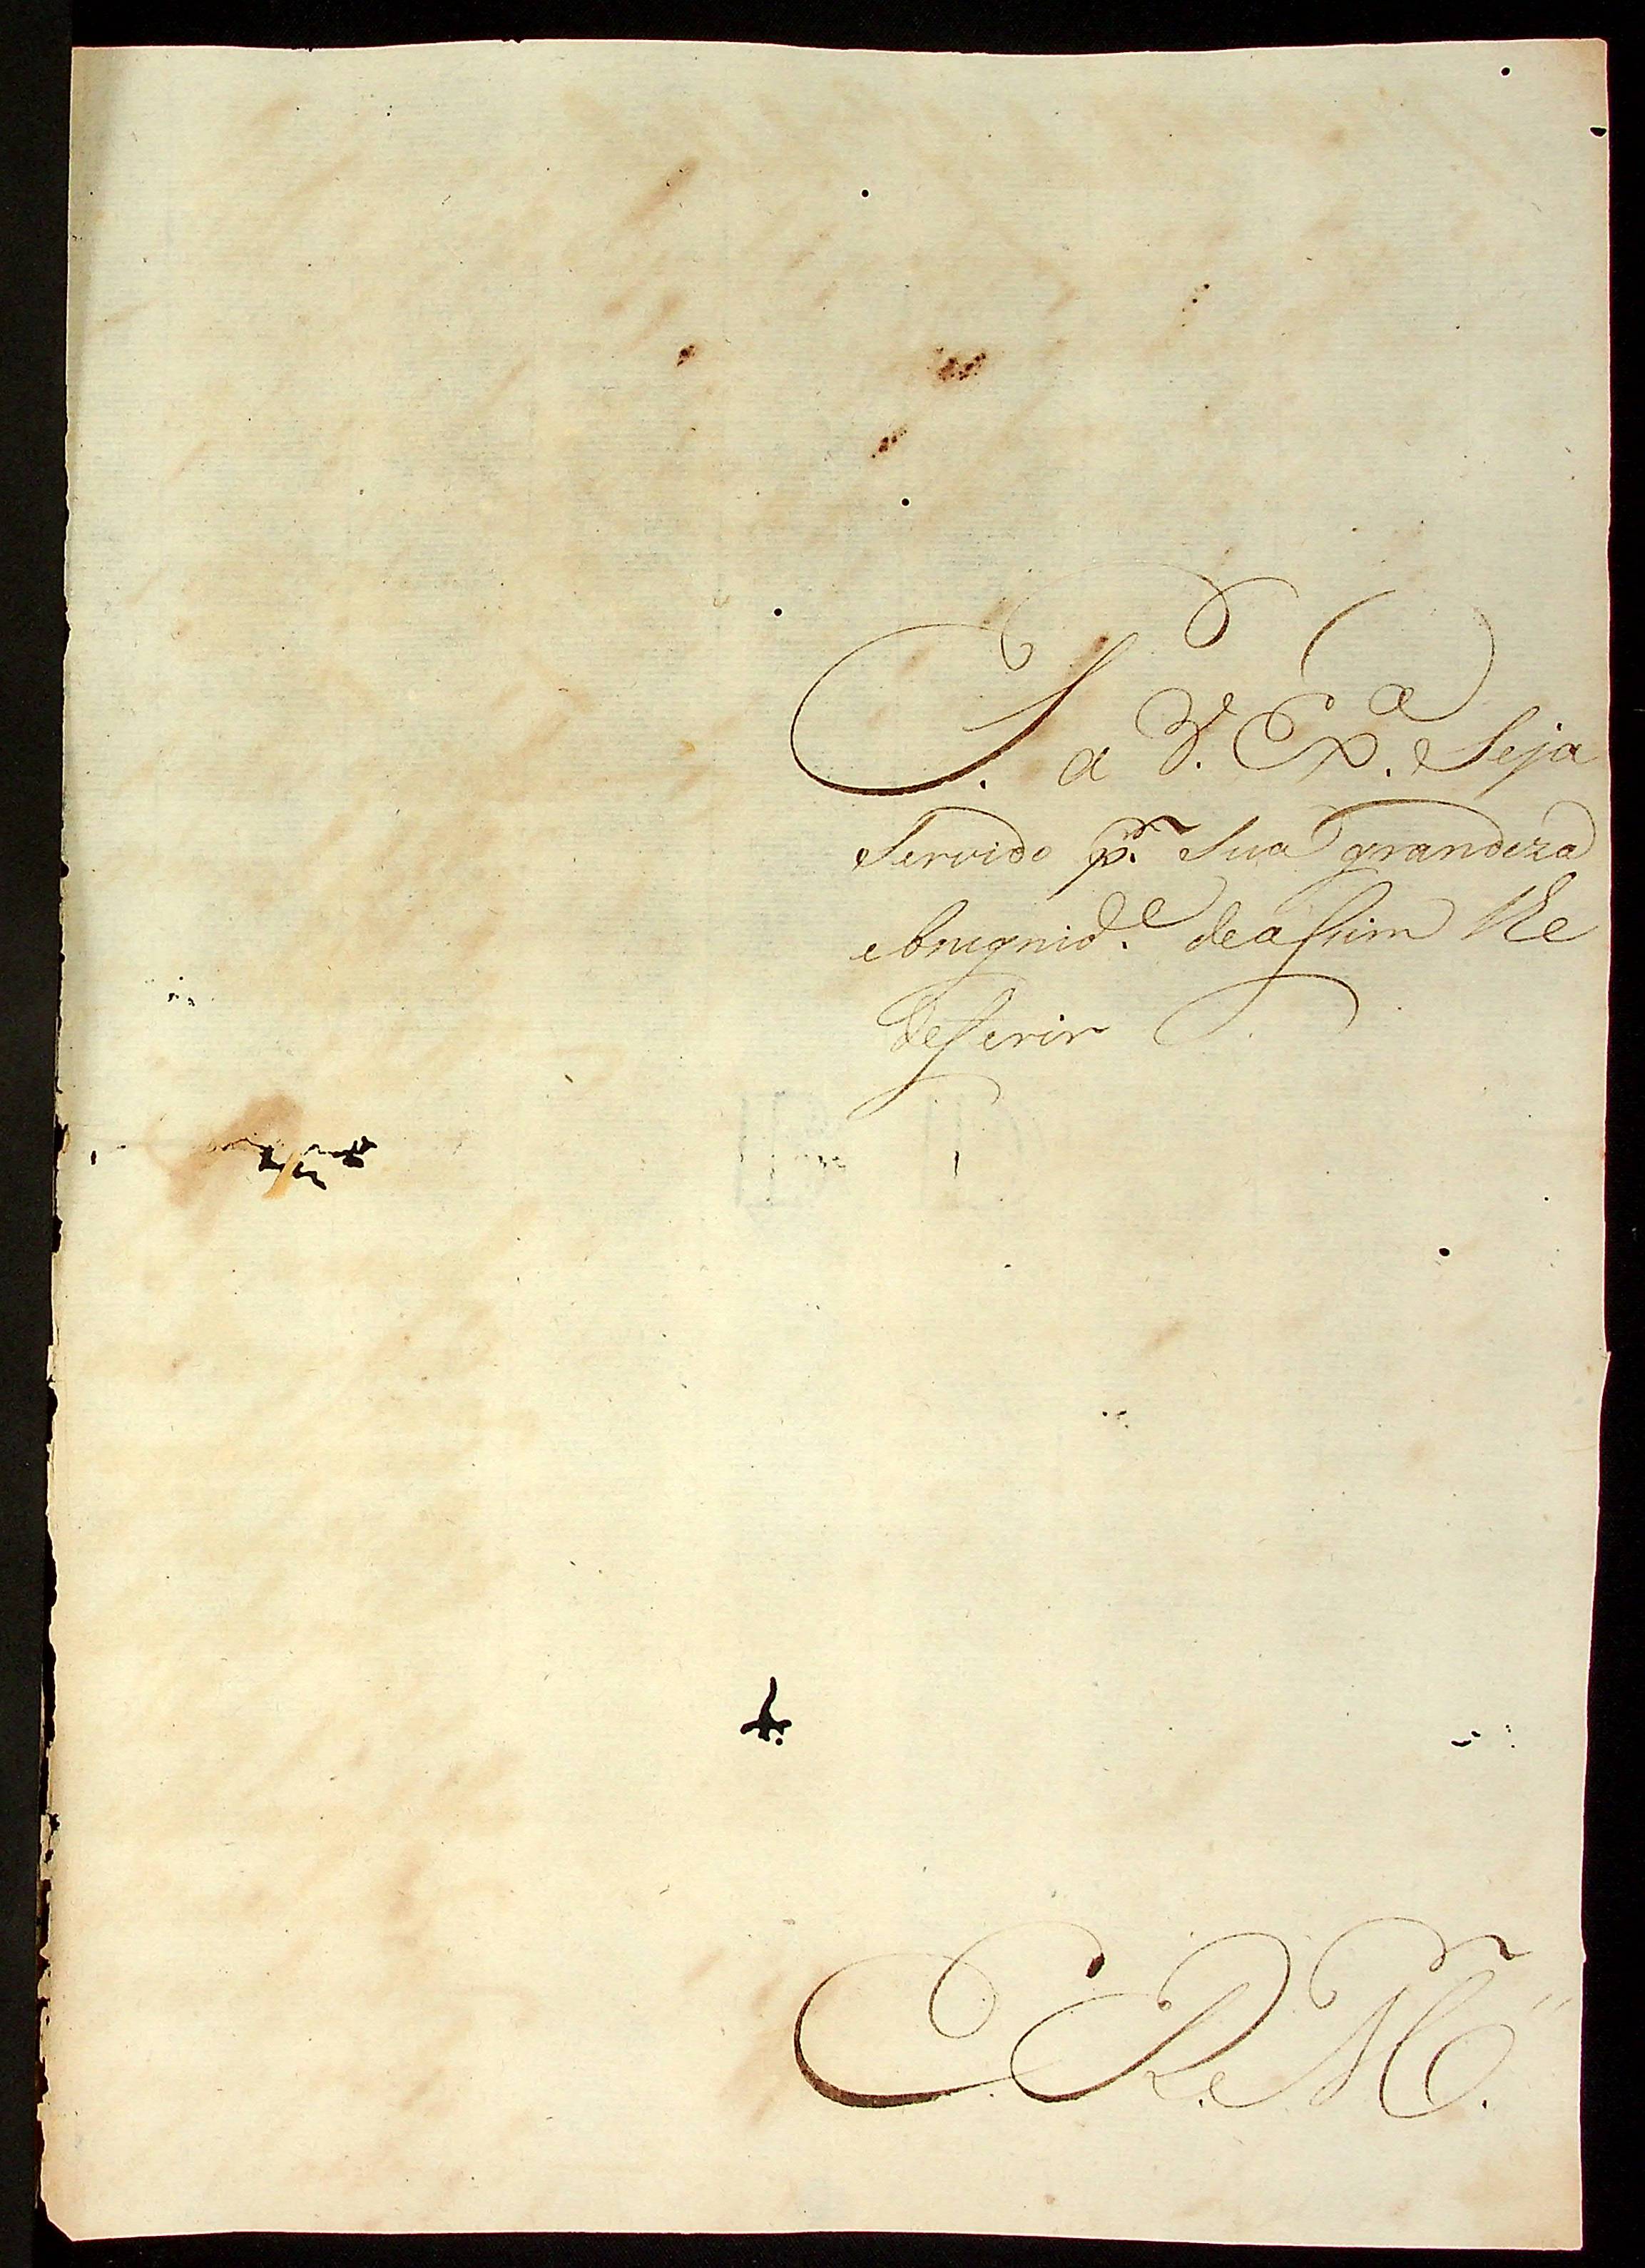 S. a V. Ex.ª Seja
Servido p.r Sua grandeza
ebnignid.e deassim Re
defferir
E. R. M.